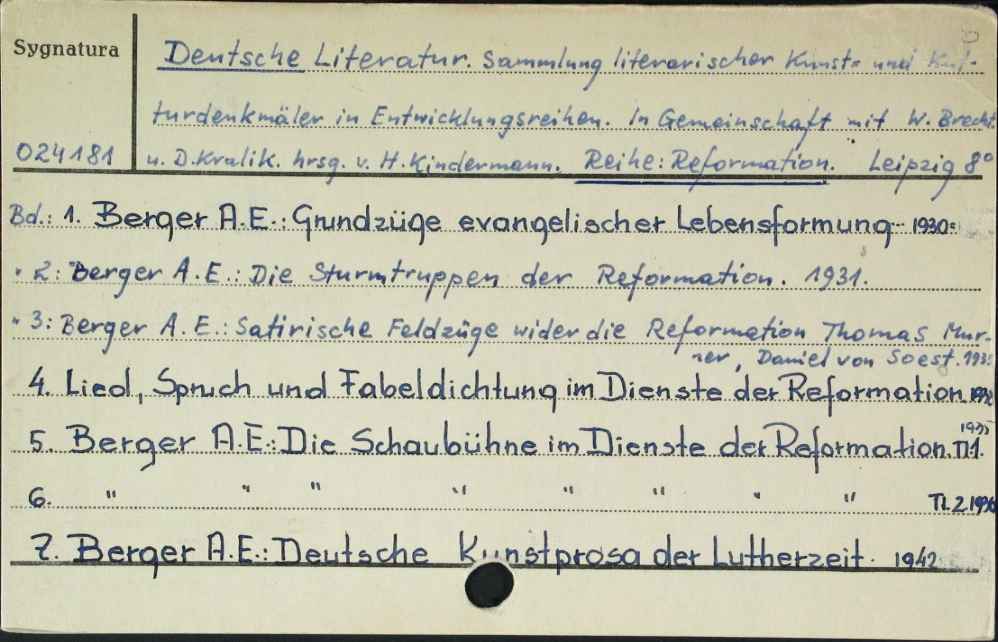 Sygnatura
Deutsche Literatur. Sammlung literarischer Kunst= und Kul-
turdenkmäler in Entwicklungsreihen. In Gemeinschaft mit W. Brecht
024181 u. D. Kralik. hrsg. v. H. Kindermann. Reihe: Reformation. Leipzig 8°
Bd.: 1. Berger A.E.: Grundzüge evangelischer Lebensformung 1930.
" 2: Berger A.E.: Die Sturmtruppen der Reformation. 1931.
" 3: Berger A.E.: Satirische Feldzüge wider die Reformation Thomas Mur-
ner, Daniel von Soest. 1933
4. Lied, Spruch und Fabeldichtung im Dienste der Reformation
5. Berger A.E.: Die Schaubühne im Dienste der Reformation. Tl 1. 1935
6. " " " " " " " " Tl. 2 1936
7. Berger A.E.: Deutsche Kunstprosa der Lutherzeit. 1942